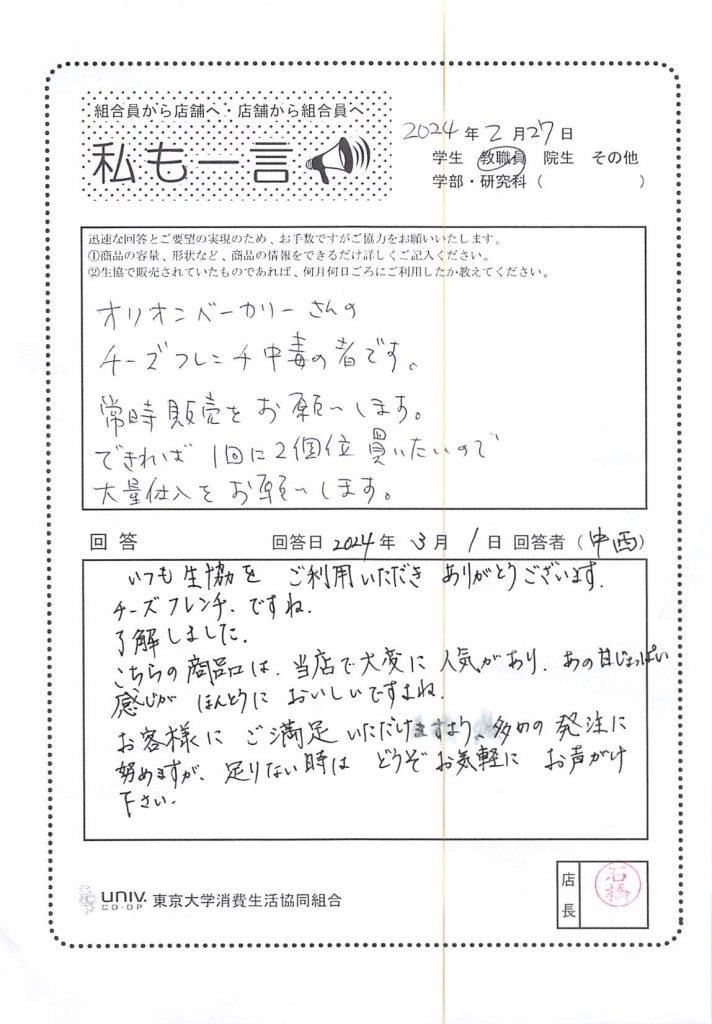 組合員から店舗へ・店舗から組合員へ
私も一言
2024年2月27日
学生 教職員 院生 その他
学部・研究科（ ）
迅速な回答とご要望の実現のため、お手数ですがご協力をお願いいたします。
①商品の容量、形状など、商品の情報をできるだけ詳しくご記入ください。
②生協で販売されていたものであれば、何月何日ごろにご利用したか教えてください。
オリオンベーカリーさんの
チーズフレンチ中毒の者です。
常時販売をお願いします。
できれば1回に2個位買いたいので
大量仕入をお願いします。
回答 回答日 2024年3月1日 回答者（中西）
いつも生協をご利用いただきありがとうございます.
チーズフレンチ.ですね.
了解しました.
こちらの商品は.当店で大変に人気があり.あの甘じょっぱい
感じがほんとうにおいしいですよね.
お客様にご満足いただけますよう、多めの発注に
努めますが、足りない時はどうぞお気軽にお声がけ
下さい.
UNIV. CO-OP 東京大学消費生活協同組合
店長 石橋